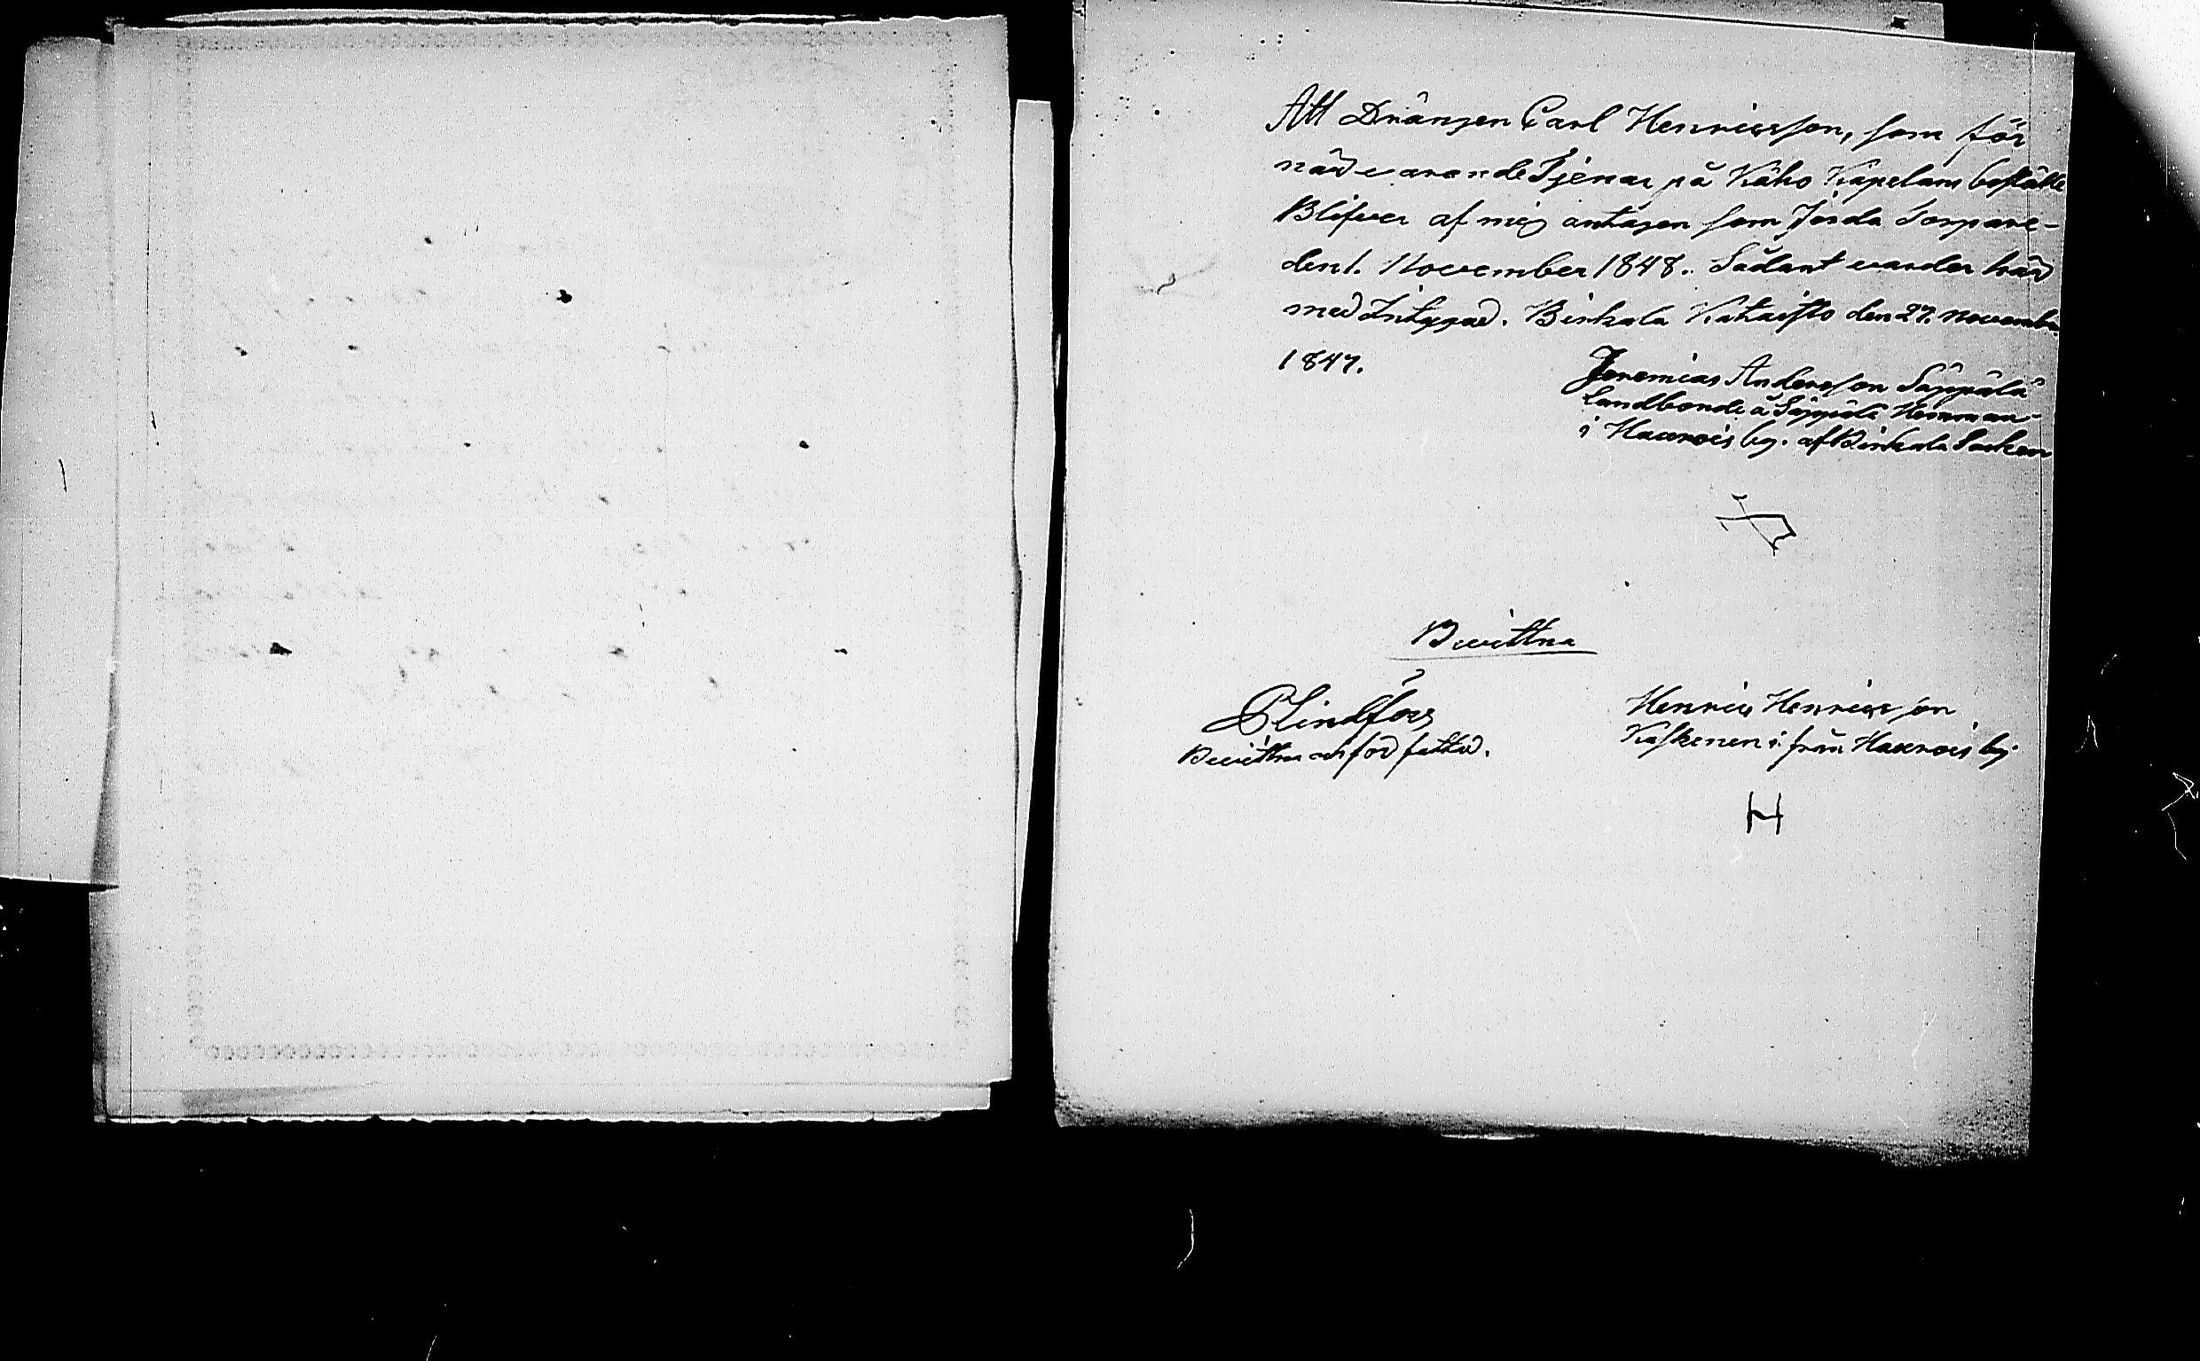 Att Drängen Carl Henricsson, som för
närvarande Tjenar på Kåho Kapelans boställe
Blifver af mig antagen som Jorda Torpare
den 1. November 1848. Sådant varder här
med Intygad. Birkala Kataisto den 27. Novembr.
1847.
Jeremias Andersson Säppälä
Landbonde å Säppälä Hemman
i Haveris by. af Birkala Socken
Bevittna
C Lindfors
Bevittna och författad.
Henric Henricsson
Käskenen i från Haveris by.
H